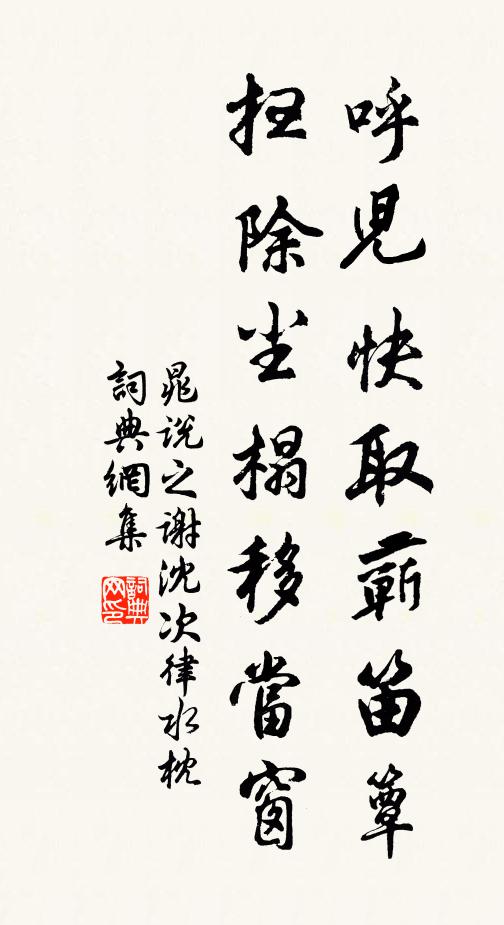 呼児快取蘄笛簟
扫除尘榻移當窗
晁说之谢沈次律水枕
詞典網集
詞典网印